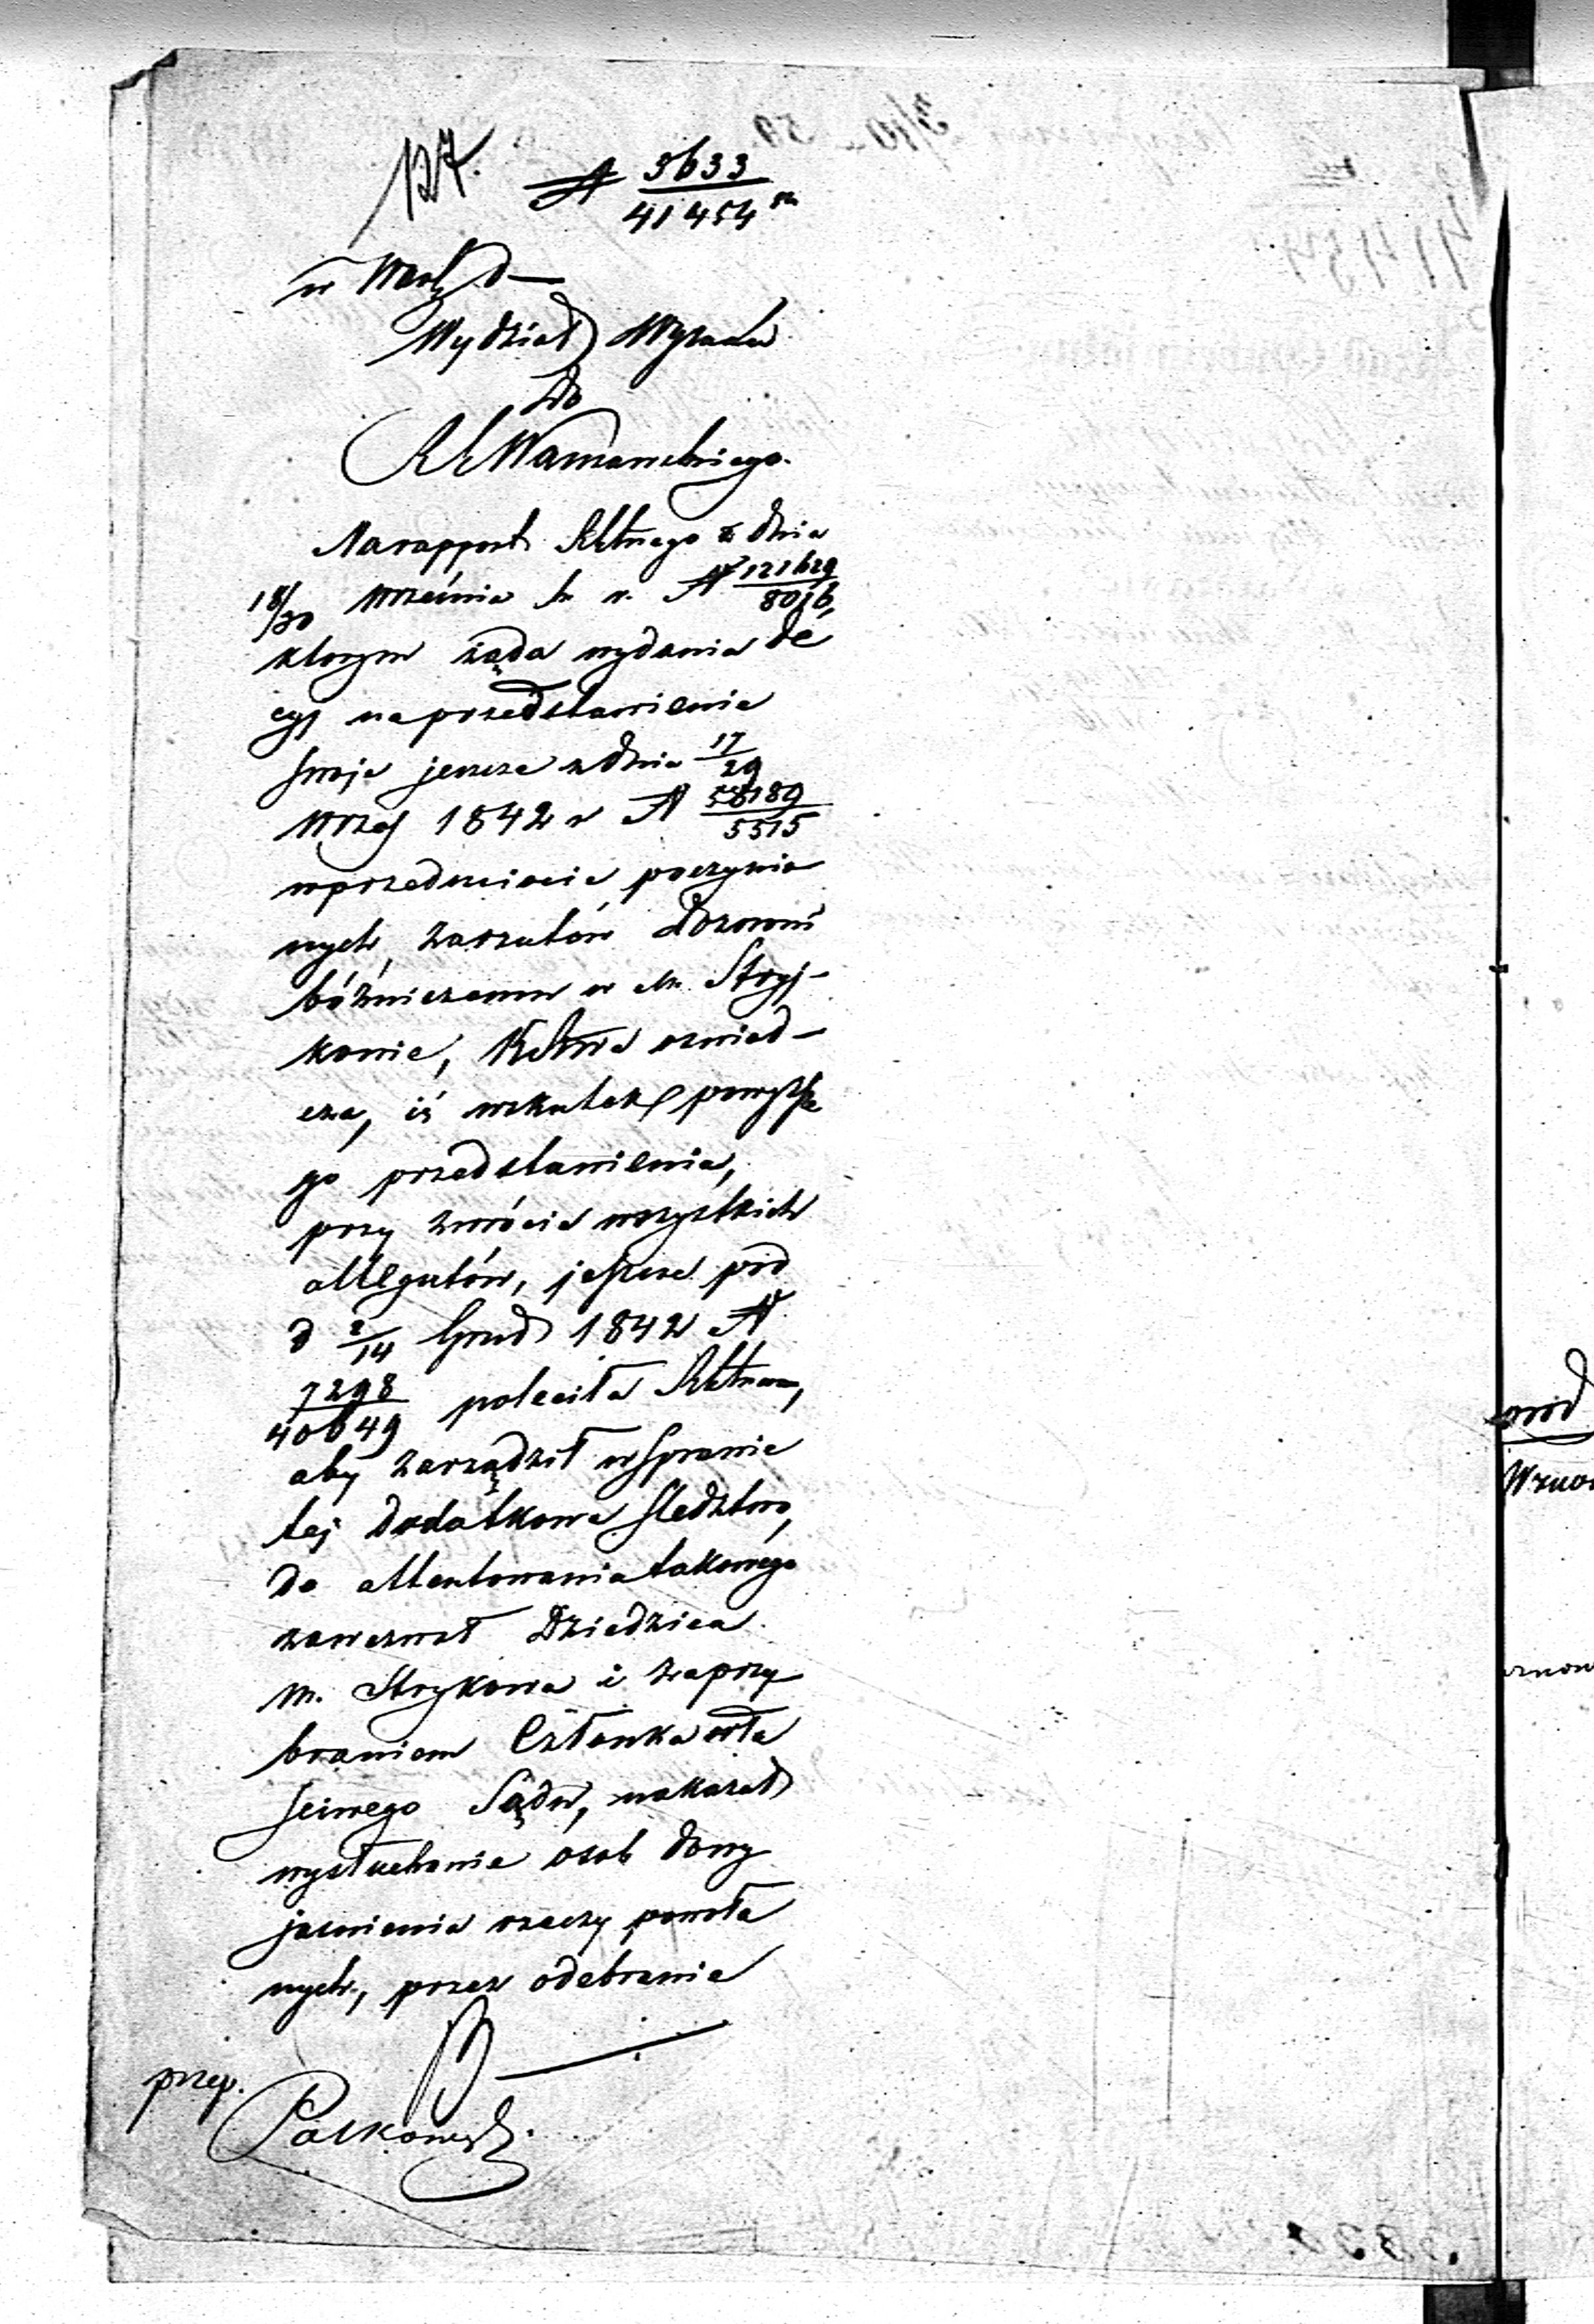 127.
N 3633/41454
w Warsz d —
Wydział Wyznań
Do
RG Warszawskiego.
Na rapport RGbnego z dnia
18/30 Września b. r. N 121629/8016,
którym żąda wydania de
cyz na przedstawienie
swoje jeszcze z dnia 17/29
Wrześ 1842 r N 58189/5515
w przedmiocie poczynio
nych zarzutów Dozorowi
bóżniczemu w m. Stryj-
kowie, KRSW oświad-
cza, iż w skutek powyższe
go przedstawienia,
przy zwrócie wszystkich
allegatów, jeszcze pod
d 2/14 Grud 1842 N
7298/40649 poleciła RGbnemu,
aby zarządził w sprawie
tej dodatkowe śledztwo,
do attentowania takowego
zawezwał Dziedzica
m. Strykowa i za przy
braniem Członka wła
ściwego Sądu, nakazał
wysłuchanie osób do wy
jaśnienia rzeczy powoła
nych, przez odebranie
przep.
Patkowski